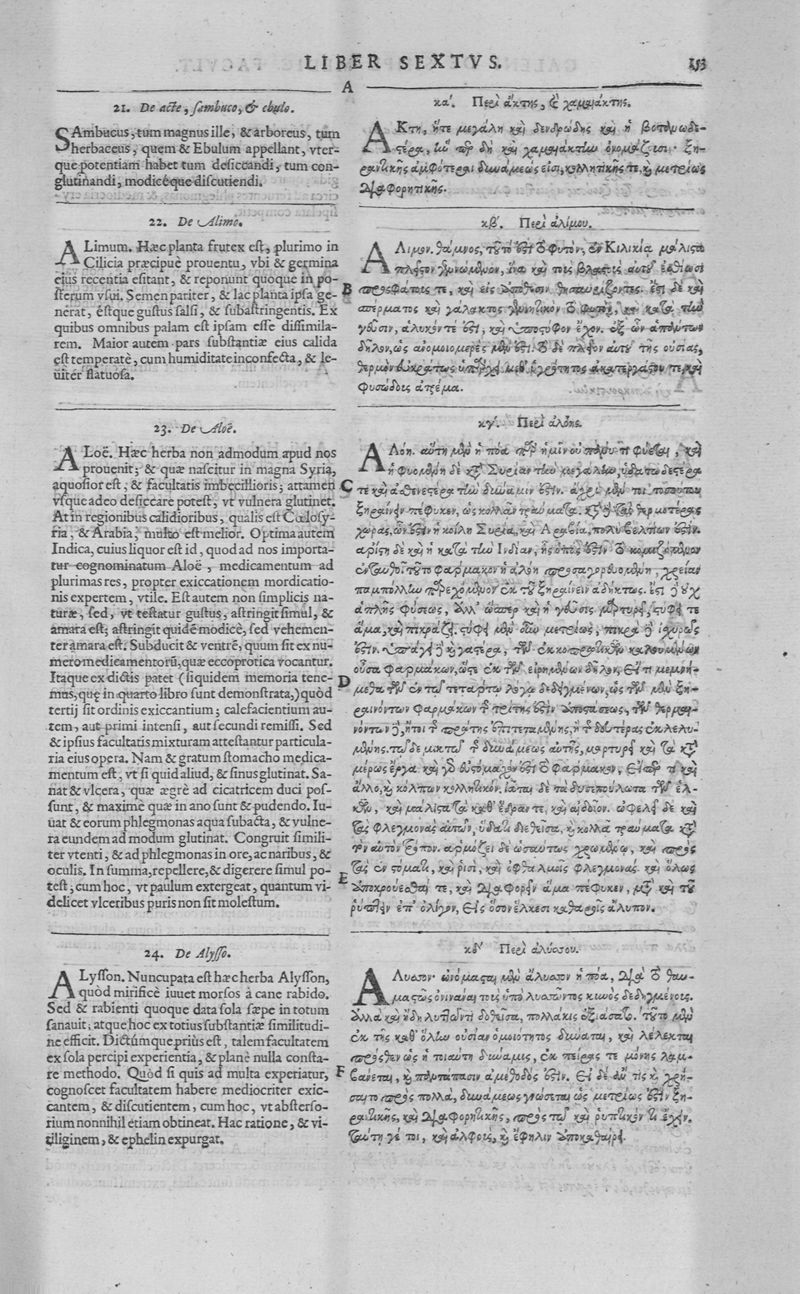 LIBER SEXTVS.
153
21. De acte, sambuco, & ebulo.
SAmbucus, tum magnus ille, & arboreus, tum
herbaceus, quem & Ebulum appellant, vter-
que potentiam habet tum desiccandi, tum con-
glutinandi, modicéque discutiendi.
22. De Alimo.
ALimum. Hæc planta frutex est, plurimo in
Cilicia præcipuè prouentu, vbi & germina
eius recentia esitant, & reponunt quoque in po-
sterum vsui. Semen pariter, & lac planta ipsa ge-
nerat, éstque gustus salsi, & subastringentis. Ex
quibus omnibus palam est ipsam esse dissimila-
rem. Maior autem pars substantiæ eius calida
est temperatè, cum humiditate inconfecta, & le-
uiter flatuosa.
23. De Aloë.
ALoë. Hæc herba non admodum apud nos
prouenit; & quæ nascitur in magna Syria,
aquosior est; & facultatis imbecillioris; attamen
vsque adeo desiccare potest, vt vulnera glutinet.
At in regionibus calidioribus, qualis est Cœlosy-
ria, & Arabia, multo est melior. Optima autem
Indica, cuius liquor est id, quod ad nos importa-
tur cognominatum Aloë, medicamentum ad
plurimas res, propter exiccationem mordicatio-
nis expertem, vtile. Est autem non simplicis na-
turæ, sed, vt testatur gustus, astringit simul, &
amara est; astringit quidē modicè, sed vehemen-
ter amara est. Subducit & ventrē, quum sit ex nu-
mero medicamentorū, quæ eccoprotica vocantur.
Itaque ex dictis patet (siquidem memoria tene-
mus, quę in quarto libro sunt demonstrata,) quòd
tertij sit ordinis exiccantium; calefacientium au-
tem, aut primi intensi, aut secundi remissi. Sed
& ipsius facultatis mixturam attestantur particula-
ria eius opera. Nam & gratum stomacho medica-
mentum est, vt si quid aliud, & sinus glutinat. Sa-
nat & vlcera, quæ ægrè ad cicatricem duci pos-
sunt, & maximè quæ in ano sunt & pudendo. Iu-
uat & eorum phlegmonas aqua subacta, & vulne-
ra eundem ad modum glutinat. Congruit simili-
ter vtenti, & ad phlegmonas in ore, ac naribus, &
oculis. In summa, repellere, & digerere simul po-
test; cum hoc, vt paulum extergeat, quantum vi-
delicet vlceribus puris non sit molestum.
24. De Alysso.
ALysson. Nuncupata est hæc herba Alysson,
quòd mirificè iuuet morsos à cane rabido.
Sed & rabienti quoque data sola sæpe in totum
sanauit; atque hoc ex totius substantiæ similitudi-
ne efficit. Dictúmque prius est, talem facultatem
ex sola percipi experientia, & planè nulla consta-
re methodo. Quòd si quis ad multa experiatur,
cognoscet facultatem habere mediocriter exic-
cantem, & discutientem, cum hoc, vt abstersо-
rium nonnihil etiam obtineat. Hac ratione, & vi-
tiliginem, & ephelin expurgat.
A
B
C
D
E
F
κα΄. Περὶ ἀκτῆς, καὶ χαμαιάκτης.
ΑΚτὴ, ἥτε μεγάλη καὶ δενδρώδης καὶ ἡ βοτανωδε-
στέρα, ἣν περ δὴ καὶ χαμαιάκτην ὀνομάζουσι· ξη-
ραντικῆς ἀμφότεραι δυνάμεώς εἰσι, κολλητικῆς τε, καὶ μετρίως
διαφορητικῆς.
κβ΄. Περὶ ἁλίμου.
ΑΛιμον. θάμνος, τοῦτο ἐστὶ τὸ φυτὸν, ἐν Κιλικίᾳ μάλιστα
πλεῖστον γινόμενον, ἵνα καὶ τοὺς βλαστοὺς αὐτοῦ ἐσθίουσι
προσφάτους τε, καὶ εἰς ἀπόθεσιν θησαυρίζοντες. ἔτι δὲ καὶ
σπέρματος καὶ γάλακτος γεννητικὸν τὸ φυτόν, καὶ κατὰ τὴν
γεῦσιν, ἁλυκόν τε ἐστὶ, καὶ ὑπόστυφον ἔχον. ἐξ ὧν ἁπάντων
δῆλον, ὡς ἀνομοιομερὲς μὲν ἐστί. τὸ δὲ πλεῖον αὐτοῦ τῆς οὐσίας,
θερμὸν εὐκράτως ὑπάρχει μεθ᾽ ὑγρότητος ἀκατεργάστου τε καὶ
φυσώδους ἀτρέμα.
κγ΄. Περὶ ἀλόης.
ΑΛόη. αὕτη μὲν ἡ πόα παρ᾽ ἡμῖν οὐ πάνυ τι φύεται, καὶ
ἡ φυομένη δὲ κατὰ Συρίαν τὴν μεγάλην, ὑδατωδεστέρα
τε καὶ ἀσθενεστέρα τὴν δύναμιν ἐστίν. ἄχρι μέν τοι τοσούτου
ξηραίνειν πέφυκεν, ὡς κολλᾶν τραύματα. κατὰ δὲ τὰς θερμοτέρας
χώρας, ὧν ἐστὶν ἡ κοίλη Συρία, καὶ Ἀραβία, πολὺ βελτίων ἐστίν.
ἀρίστη δὲ καὶ ἡ κατὰ τὴν Ἰνδίαν, ἧς ὀπός ἐστιν τὸ κομιζόμενον
ἐνταυθοῖ τοῦτο φάρμακον ἡ ἀλόη προσαγορευομένη, χρείαν
παμπόλλων παρεχόμενον ἐκ τοῦ ξηραίνειν ἀδήκτως. ἔστι δ᾽ οὐχ
ἁπλῆς φύσεως, ἀλλ᾽ ὥσπερ καὶ ἡ γεῦσις μαρτυρεῖ, στύφει τε
ἅμα, καὶ πικράζει. στύφει μὲν οὖν μετρίως, πικρὰ δ᾽ ἰσχυρῶς
ἐστίν. ὑπάγει δὲ καὶ γαστέρα, τῶν ἐκκοπρωτικῶν καλουμένων
οὖσα φαρμάκων, ὥστε ἐκ τῶν εἰρημένων δῆλον, εἴ τι μεμνή-
μεθα τῶν ἐν τῷ τετάρτῳ λόγῳ δεδειγμένων, ὡς τῶν μὲν ξη-
ραινόντων φαρμάκων τῆς τρίτης ἐστὶν ἀποστάσεως, τῶν θερμαι-
νόντων δ᾽, ἤτοι τῆς πρώτης ἐπιτεταμένης, ἢ τῆς δευτέρας ἐκλελυ-
μένης. τῷ δὲ μικτῷ τῆς δυνάμεως αὐτῆς, μαρτυρεῖ καὶ τὰ κατὰ
μέρος ἔργα. καὶ γὸ εὐστόμαχόν ἐστι τὸ φάρμακον, εἴπερ τι καὶ
ἄλλο, καὶ κόλπων κολλητικόν. ἰᾶται δὲ τὰ δυσεπούλωτα τῶν ἑλ-
κῶν, καὶ μάλιστα τὰ καθ᾽ ἕδραν τε, καὶ αἰδοῖον. ὠφελεῖ δὲ καὶ
τὰς φλεγμονὰς αὐτῶν, ὕδατι διεθεῖσα, καὶ κολλᾷ τραύματα κατὰ
τὸν αὐτὸν τρόπον. ἁρμόζει δὲ ὡσαύτως χρωμένῳ, καὶ πρὸς
τὰς ἐν στόματι, καὶ ῥισὶ, καὶ ὀφθαλμοῖς φλεγμονάς. καὶ ὅλως
ἀποκρούεσθαί τε, καὶ διαφορεῖν ἅμα πέφυκεν, μετὰ καὶ τοῦ
ῥύπτειν ἐπ᾽ ὀλίγον, εἰς ὅσον ἕλκεσι καθαροῖς ἄλυπον.
κδ΄ Περὶ ἀλύσσου.
ΑΛυσσον· ὠνόμασται μὲν ἄλυσσον ἡ πόα, διὰ τὸ θαυ-
μαστῶς ὀνινάναι τοὺς ὑπὸ λυσσῶντος κυνὸς δεδηγμένους.
ἀλλὰ καὶ ἤδη λυττῶντι δοθεῖσα, πολλάκις ἐξιάσατο. τοῦτο μὲν
ἐκ τῆς καθ᾽ ὅλην οὐσίαν ὁμοιότητος δύναται, καὶ λέλεκται
πρόσθεν ὡς ἡ τοιαύτη δύναμις, ἐκ πείρας τε μόνης λαμ-
βάνεται, καὶ πάμπασιν ἀμέθοδός ἐστιν. εἰ δὲ αὖ τις καὶ χρή-
σαιτο πρὸς πολλὰ, δυνάμεως γνώσεται ὡς μετρίως ἐστὶν ξη-
ραντικῆς, καὶ διαφορητικῆς, πρὸς τῷ καὶ ῥυπτικόν τι ἔχειν.
ταύτῃ γέ τοι, καὶ ἀλφοὺς, καὶ ἔφηλιν ἀποκαθαίρει.